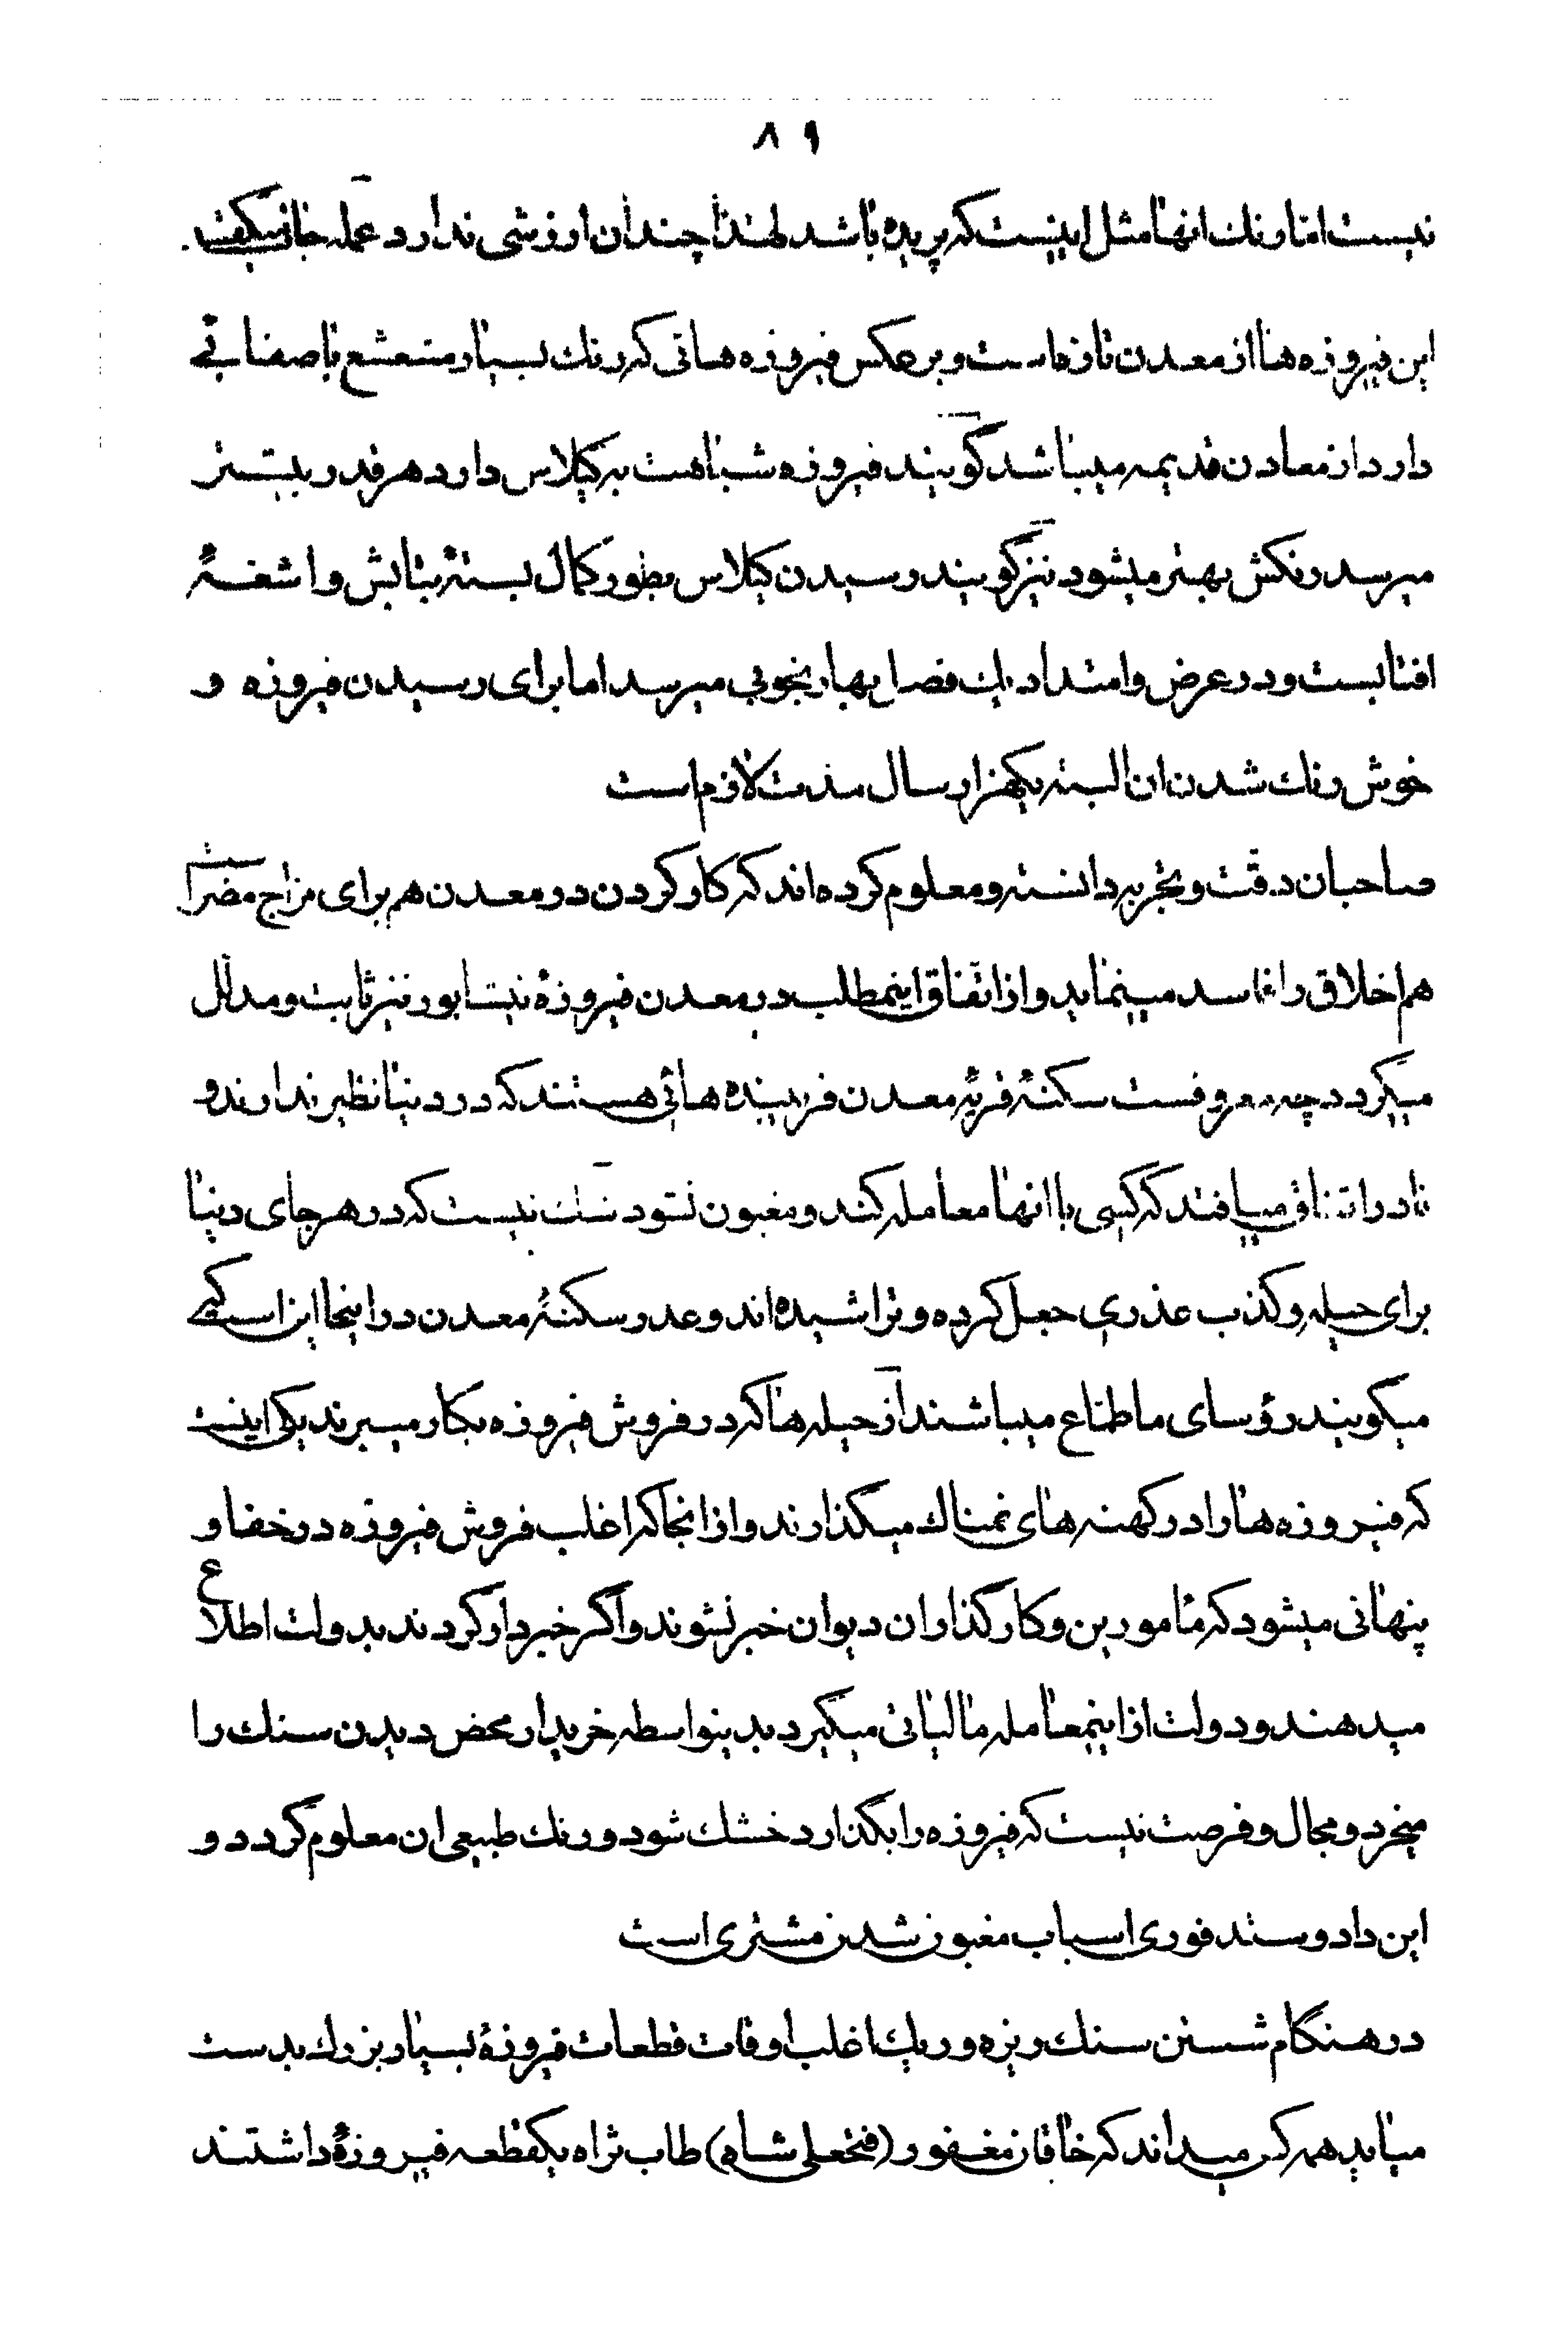 ۹ ۸
نیست اما رنك انها مثل اینست که پریده باشد لهذا چندان ارزشی ندارد عمله جات میکفتند
این فیروزه ها از معدن تازه است و بر عکس فیروزه هائی که رنك بسیار متشعشع باصفائی
دارد از معادن قدیمه میباشد کویند فیروزه شباهت به کیلاس دارد هر قدر بیشتر
میرسد رنکش بهتر میشود نیز کویند رسیدن کیلاس بطور کمال بسته بتابش و اشعهٔ
افتابست و در عرض و امتداد یك فصل بهار بخوبی میرسد اما برای رسیدن فیروزه و
خوش رنك شدن ان البته یکهزار سال مدت لازم است
صاحبان دقت و تجربه دانسته و معلوم کرده اند که کار کردن در معدن هم برای مزاج مضر است
هم اخلاق را فاسد مینماید و از اتفاق اینمطلب در معدن فیروزهٔ نیشابور نیز ثابت و مدلل
میکردد چه معروفست سکنهٔ قریهٔ معدن فریبنده هائی هستند که در دنیا نظیر ندارند و
نادرا اتفاق میافتد که کسی با انها معامله کند و مغبون نشود شك نیست که در هر جای دنیا
برای حیله و کذب عذری جعل کرده و تراشیده اند و عذر سکنهٔ معدن در اینجا این است که
میکویند رؤسای ما طماع میباشند از حیله ها که در فروش فیروزه بکار میبرند یکی اینست
که فیروزه ها را در کهنه های نمناك میکذارند و از انجا که اغلب فروش فیروزه در خفا و
پنهانی میشود که مأمورین و کارکذاران دیوان خبر نشوند و اگر خبردار کردند بدولت اطلاع
میدهند و دولت از اینمعامله مالیاتی میکیرد بدینواسطه خریدار محض دیدن سنك را
میخرد و مجال و فرصت نیست که فیروزه را بکذارد خشك شود و رنك طبیعی ان معلوم کردد و
این داد و ستد فوری اسباب مغبون شدن مشتری است
در هنکام شستن سنك ریزه و ریك اغلب اوقات قطعات فیروزهٔ بسیار بزرك بدست
میاید همه کس میداند که خاقان مغفور (فتحعلی شاه) طاب ثراه یکقطعه فیروزهٔ داشتند